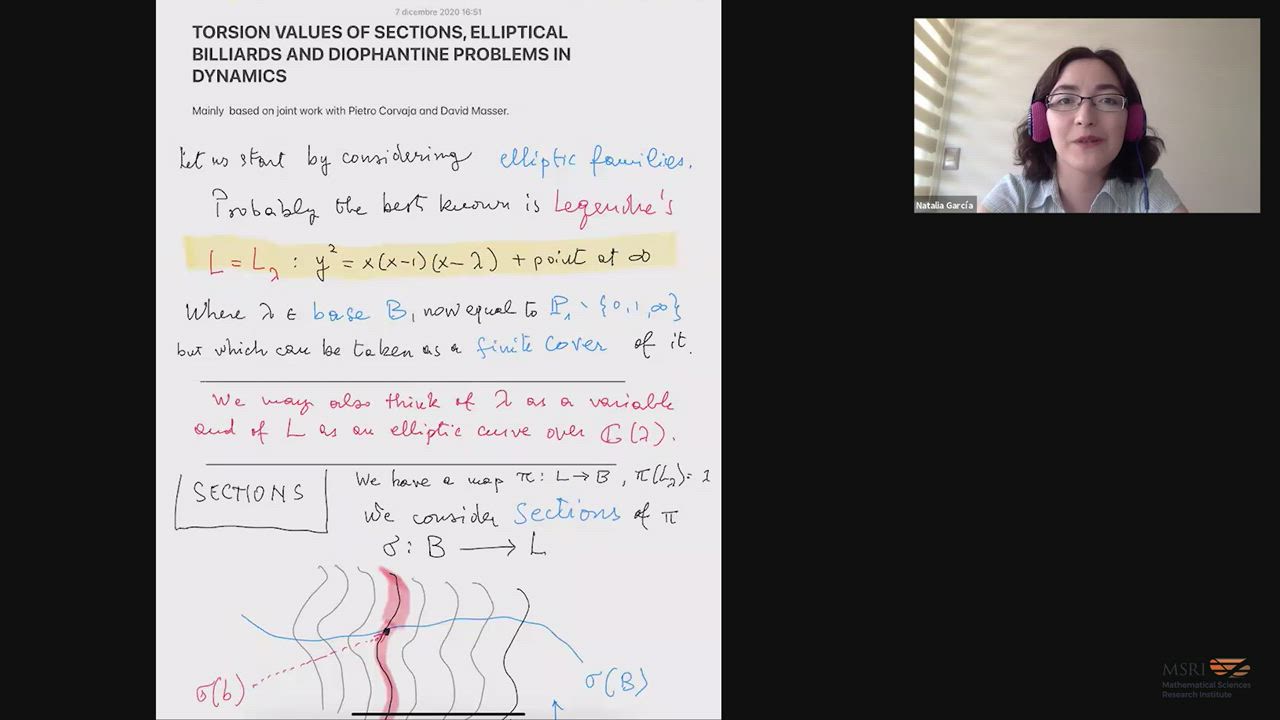 7 dicembre 2020 16:51
TORSION VALUES OF SECTIONS, ELLIPTICAL
BILLIARDS AND DIOPHANTINE PROBLEMS IN
DYNAMICS
Mainly based on joint work with Pietro Corvaja and David Masser.
Let us start by considering elliptic families.
Probably the best known is Legendre's
L = L_λ : y² = x(x-1)(x-λ) + point at ∞
Where λ ∈ base B, now equal to ℙ₁ \ {0,1,∞}
but which can be taken as a finite cover of it.
We may also think of λ as a variable
and of L as an elliptic curve over ℂ(λ).
SECTIONS
We have a map π: L → B, π(L_λ) = λ
We consider Sections of π
σ: B → L
σ(b)
σ(B)
Natalia García
MSRI
Mathematical Sciences
Research Institute